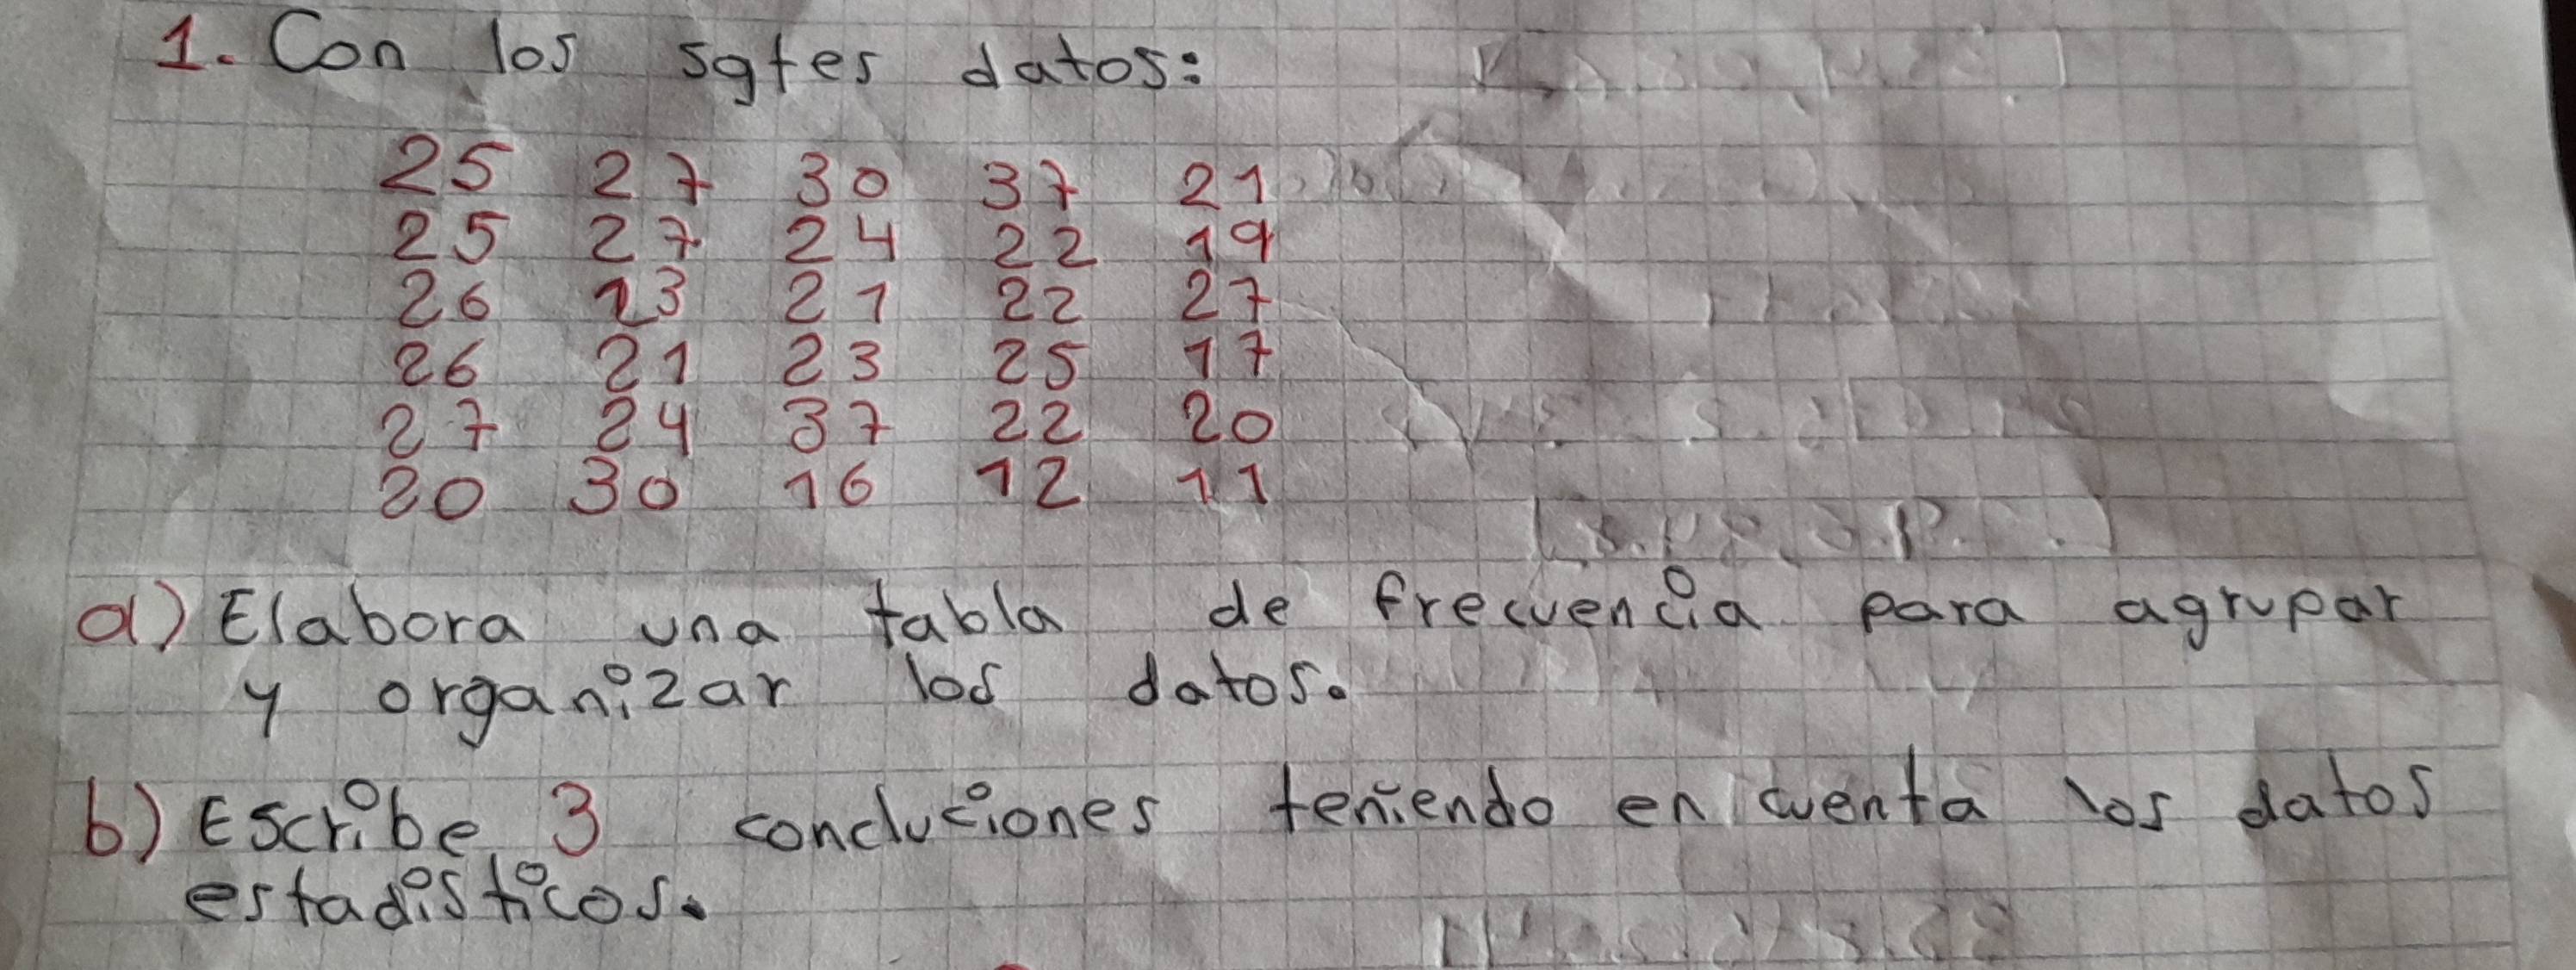 1. Con los sgtes datos:
25 27 30 37 21
25 27 24 22 19
26 13 21 22 27
26 21 23 25 17
27 24 37 22 20
20 30 16 12 11
a) Elabora una tabla de frecuencia para agrupar
y organizar los datos.
b) Escribe 3 concluciones teniendo en cuenta los datos
estadisticos.